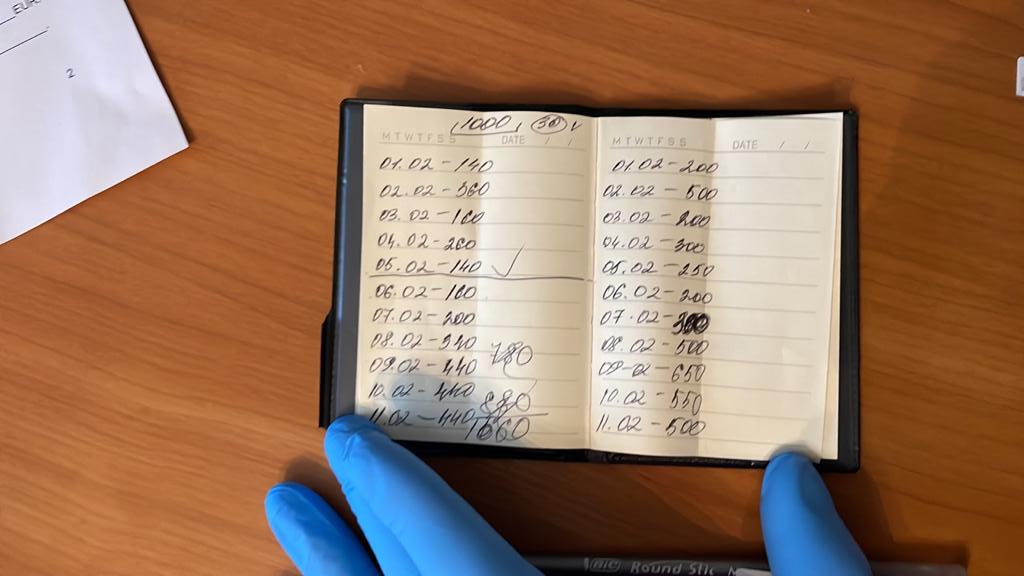 EUR
2
1000 50
M T W T F S S DATE / /
01.02-140
02.02-360
03.02-160
04.02-260
05.02-140 ✓
06.02-160
07.02-200
08.02-340
09.02-440
780
10.02-440
880
11.02-440
1660
M T W T F S S DATE / /
01.02-200
02.02-500
03.02-200
04.02-300
05.02-250
06.02-200
07.02-
08.02-500
09-02-650
10.02-550
11.02-500
BIC Round Stic M